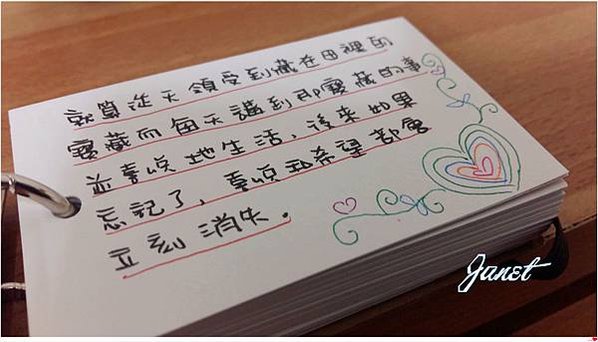 就算從天領受到藏在田裡的
寶藏而每天講到那寶藏的事
並喜悅地生活，後來如果
忘記了，喜悅和希望都會
立刻消失。
Janet